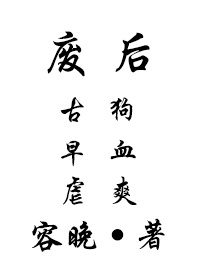 废后
古狗
早血
虐爽
容晚●著